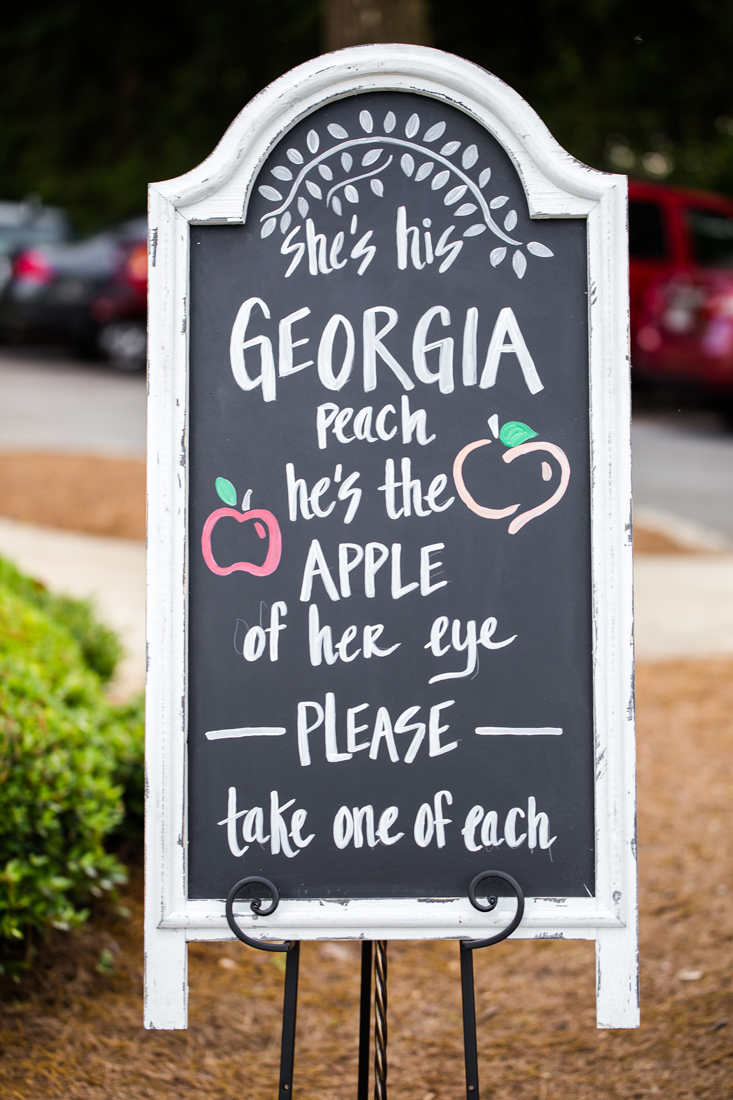 she's his
GEORGIA
peach
he's the
APPLE
of her eye
PLEASE
take one of each